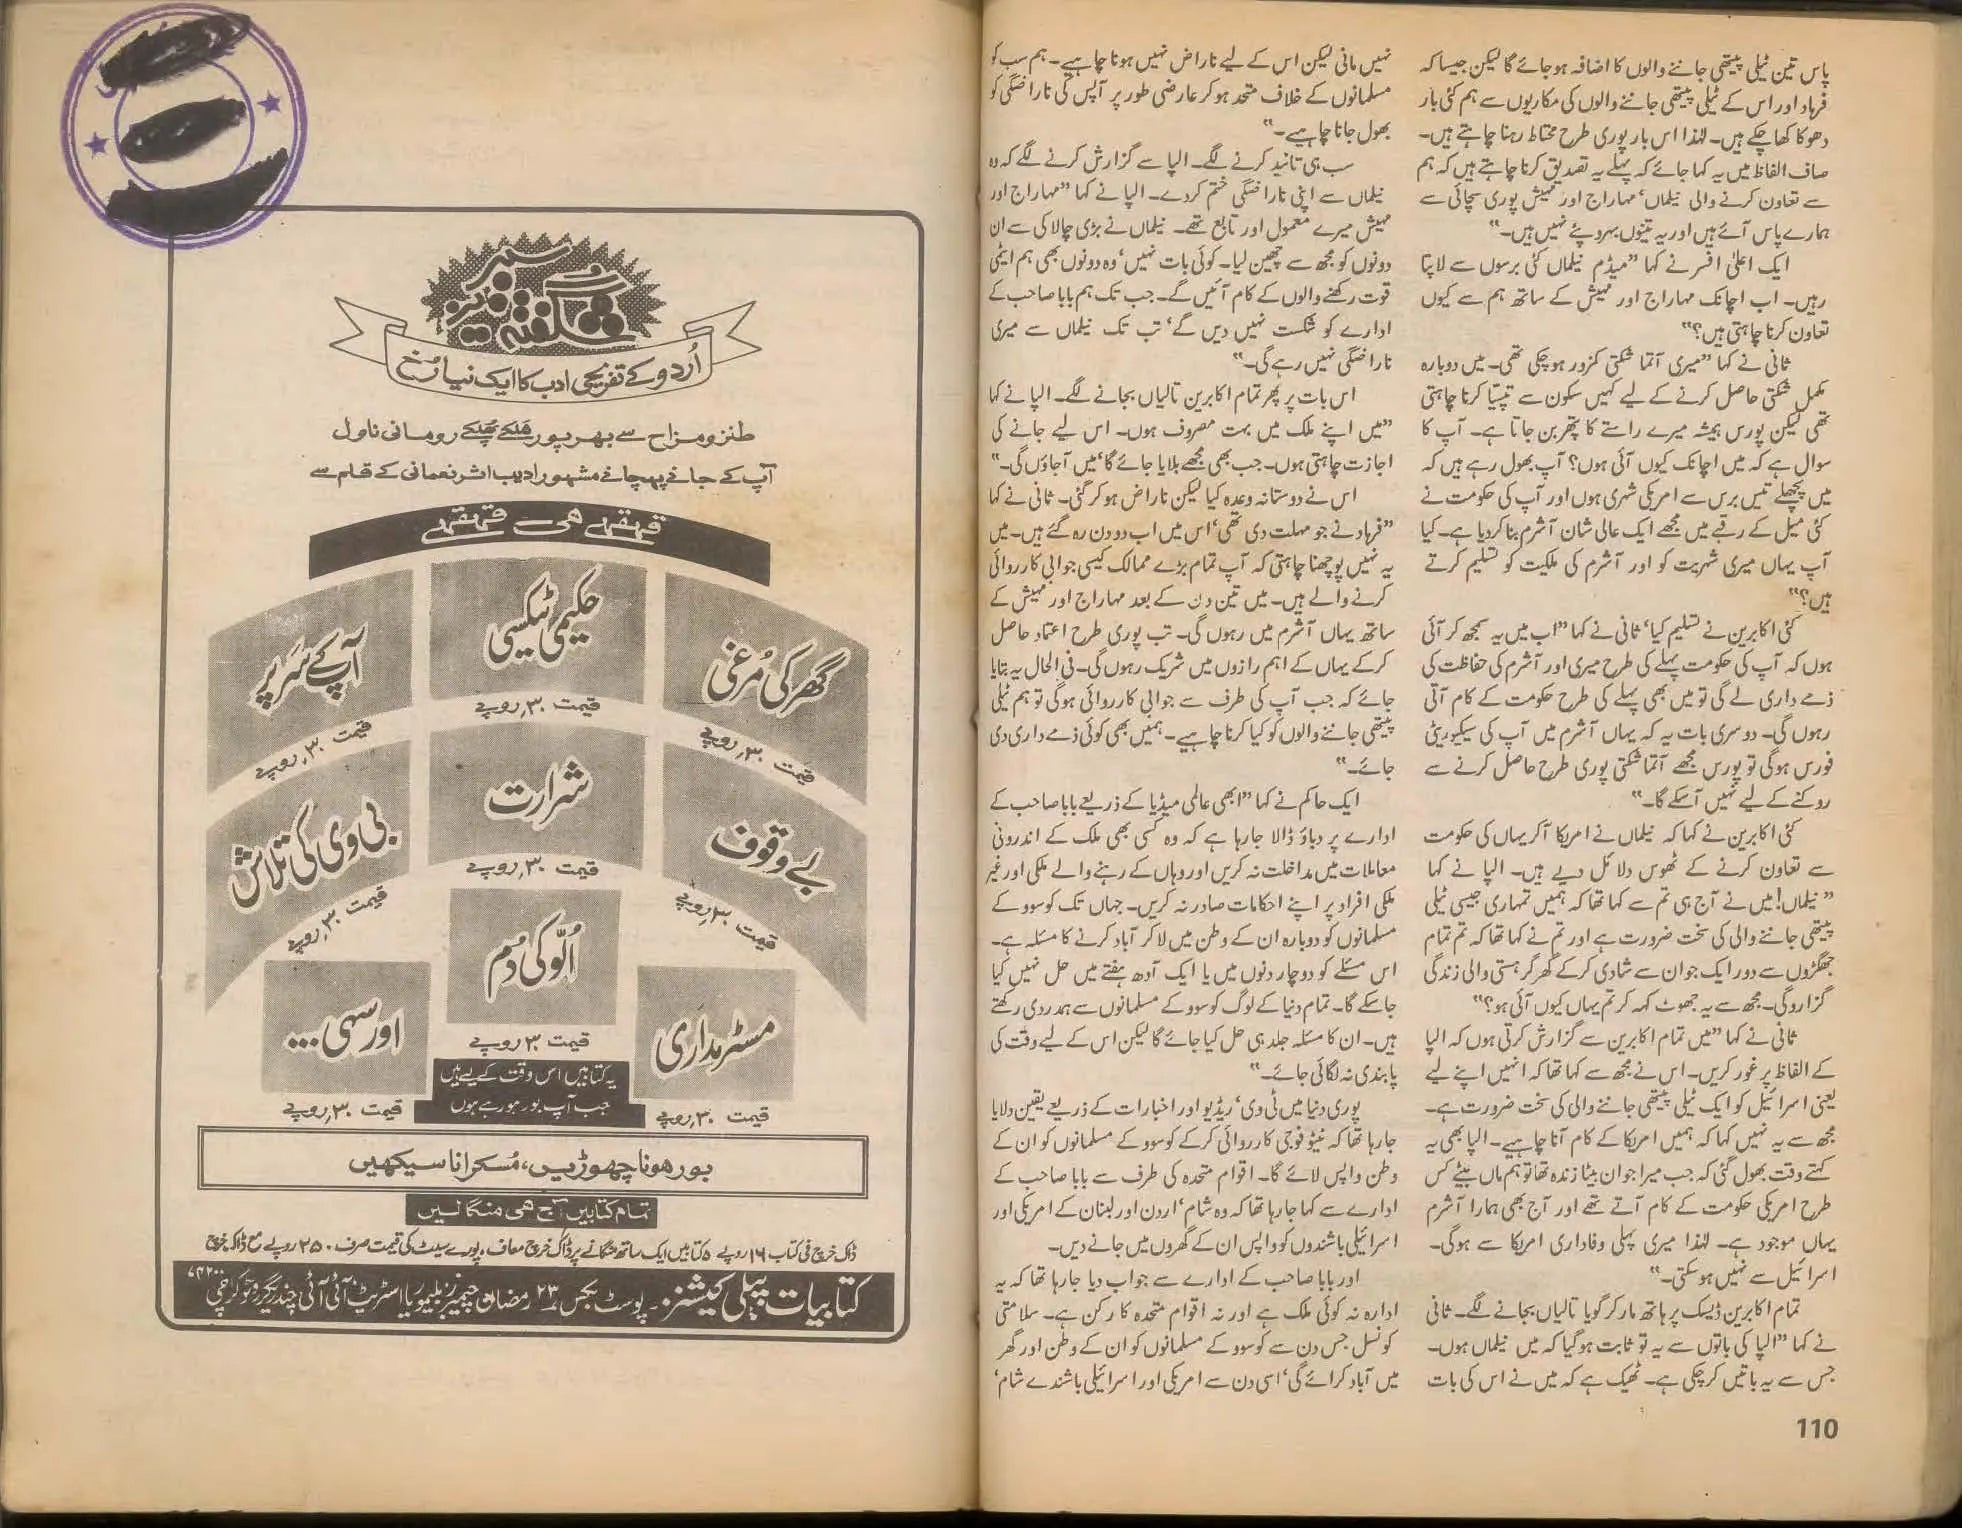 پاس تین ٹیلی پیتھی جاننے والوں کا اضافہ ہو جائے گا لیکن جیسا کہ
فرہاد اور اس کے ٹیلی پیتھی جاننے والوں کی مکاریوں سے ہم کئی بار
دھوکا کھا چکے ہیں۔ لہٰذا اس بار پوری طرح محتاط رہنا چاہتے ہیں۔
صاف الفاظ میں یہ کہا جائے کہ پہلے یہ تصدیق کرنا چاہتے ہیں کہ ہم
سے تعاون کرنے والی نیلماں، مہاراج اور مہیش پوری سچائی سے
ہمارے پاس آئے ہیں اور یہ تینوں بہروپئے نہیں ہیں۔"
ایک اعلیٰ افسر نے کہا "میڈم نیلماں کئی برسوں سے لاپتا
رہیں۔ اب اچانک مہاراج اور مہیش کے ساتھ ہم سے کیوں
تعاون کرنا چاہتی ہیں؟"
ثانی نے کہا "میری آتما شکتی کمزور ہو چکی تھی۔ میں دوبارہ
مکمل شکتی حاصل کرنے کے لیے کہیں سکون سے تپسیا کرنا چاہتی
تھی لیکن پورس ہمیشہ میرے راستے کا پتھر بن جاتا ہے۔ آپ کا
سوال ہے کہ میں اچانک کیوں آئی ہوں؟ آپ بھول رہے ہیں کہ
میں پچھلے تیس برس سے امریکی شہری ہوں اور آپ کی حکومت نے
کئی میل کے رقبے میں مجھے ایک عالی شان آشرم بنا کر دیا ہے۔ کیا
آپ یہاں میری شہریت کو اور آشرم کی ملکیت کو تسلیم کرتے
ہیں؟"
کئی اکابرین نے تسلیم کیا، ثانی نے کہا "اب میں یہ سمجھ کر آئی
ہوں کہ آپ کی حکومت پہلے کی طرح میری اور آشرم کی حفاظت کی
ذمے داری لے گی تو میں بھی پہلے کی طرح حکومت کے کام آتی
رہوں گی۔ دوسری بات یہ کہ یہاں آشرم میں آپ کی سیکیوریٹی
فورس ہوگی تو پورس مجھے آتما شکتی پوری طرح حاصل کرنے سے
روکنے کے لیے نہیں آسکے گا۔"
کئی اکابرین نے کہا کہ نیلماں نے امریکا آکر یہاں کی حکومت
سے تعاون کرنے کے ٹھوس دلائل دیے ہیں۔ الپا نے کہا
"نیلماں! میں نے آج ہی تم سے کہا تھا کہ ہمیں تمہاری جیسی ٹیلی
پیتھی جاننے والی کی سخت ضرورت ہے اور تم نے کہا تھا کہ تم تمام
جھگڑوں سے دور ایک جوان سے شادی کرکے گھر گرہستی والی زندگی
گزارو گی۔ مجھ سے یہ جھوٹ کہہ کر تم یہاں کیوں آئی ہو؟"
ثانی نے کہا "میں تمام اکابرین سے گزارش کرتی ہوں کہ الپا
کے الفاظ پر غور کریں۔ اس نے مجھ سے کہا تھا کہ انہیں اپنے لیے
یعنی اسرائیل کو ایک ٹیلی پیتھی جاننے والی کی سخت ضرورت ہے۔
مجھ سے یہ نہیں کہا کہ ہمیں امریکا کے کام آنا چاہیے۔ الپا بھی یہ
کہتے وقت بھول گئی کہ جب میرا جوان بیٹا زندہ تھا تو ہم ماں بیٹے کس
طرح امریکی حکومت کے کام آتے تھے اور آج بھی ہمارا آشرم
یہاں موجود ہے۔ لہٰذا میری پہلی وفاداری امریکا سے ہوگی۔
اسرائیل سے نہیں ہو سکتی۔"
تمام اکابرین ڈیسک پر ہاتھ مار کر گویا تالیاں بجانے لگے۔ ثانی
نے کہا "الپا کی باتوں سے یہ تو ثابت ہو گیا کہ میں نیلماں ہوں۔
جس سے یہ باتیں کر چکی ہے۔ ٹھیک ہے کہ میں نے اس کی بات
110
نہیں مانی لیکن اس کے لیے ناراض نہیں ہونا چاہیے۔ ہم سب کو
مسلمانوں کے خلاف متحد ہو کر عارضی طور پر آپس کی ناراضگی کو
بھول جانا چاہیے۔"
سب ہی تائید کرنے لگے۔ الپا سے گزارش کرنے لگے کہ وہ
نیلماں سے اپنی ناراضگی ختم کر دے۔ الپا نے کہا "مہاراج اور
مہیش میرے معمول اور تابع تھے۔ نیلماں نے بڑی چالاکی سے ان
دونوں کو مجھ سے چھین لیا۔ کوئی بات نہیں، وہ دونوں بھی ہم ایٹمی
قوت رکھنے والوں کے کام آئیں گے۔ جب تک ہم بابا صاحب کے
ادارے کو شکست نہیں دیں گے، تب تک نیلماں سے میری
ناراضگی نہیں رہے گی۔"
اس بات پر پھر تمام اکابرین تالیاں بجانے لگے۔ الپا نے کہا
"میں اپنے ملک میں بہت مصروف ہوں۔ اس لیے جانے کی
اجازت چاہتی ہوں۔ جب بھی مجھے بلایا جائے گا، میں آجاؤں گی۔"
اس نے دوستانہ وعدہ کیا لیکن ناراض ہو کر گئی۔ ثانی نے کہا
"فرہاد نے جو مہلت دی تھی، اس میں اب دو دن رہ گئے ہیں۔ میں
یہ نہیں پوچھنا چاہتی کہ آپ تمام بڑے ممالک کیسی جوابی کارروائی
کرنے والے ہیں۔ میں تین دن کے بعد مہاراج اور مہیش کے
ساتھ یہاں آشرم میں رہوں گی۔ تب پوری طرح اعتماد حاصل
کرکے یہاں کے اہم رازوں میں شریک رہوں گی۔ فی الحال یہ بتایا
جائے کہ جب آپ کی طرف سے جوابی کارروائی ہوگی تو ہم ٹیلی
پیتھی جاننے والوں کو کیا کرنا چاہیے۔ ہمیں بھی کوئی ذمے داری دی
جائے۔"
ایک حاکم نے کہا "ابھی عالمی میڈیا کے ذریعے بابا صاحب کے
ادارے پر دباؤ ڈالا جا رہا ہے کہ وہ کسی بھی ملک کے اندرونی
معاملات میں مداخلت نہ کریں اور وہاں کے رہنے والے ملکی اور غیر
ملکی افراد پر اپنے احکامات صادر نہ کریں۔ جہاں تک کوسوو کے
مسلمانوں کو دوبارہ ان کے وطن میں لاکر آباد کرنے کا مسئلہ ہے۔
اس مسئلے کو دو چار دنوں میں یا ایک آدھ ہفتے میں حل نہیں کیا
جاسکے گا۔ تمام دنیا کے لوگ کوسوو کے مسلمانوں سے ہمدردی رکھتے
ہیں۔ ان کا مسئلہ جلد ہی حل کیا جائے گا لیکن اس کے لیے وقت کی
پابندی نہ لگائی جائے۔"
پوری دنیا میں ٹی وی، ریڈیو اور اخبارات کے ذریعے یقین دلایا
جا رہا تھا کہ نیٹو فوجی کارروائی کرکے کوسوو کے مسلمانوں کو ان کے
وطن واپس لائے گا۔ اقوام متحدہ کی طرف سے بابا صاحب کے
ادارے سے کہا جا رہا تھا کہ وہ شام، اردن اور لبنان کے امریکی اور
اسرائیلی باشندوں کو واپس ان کے گھروں میں جانے دیں۔
اور بابا صاحب کے ادارے سے جواب دیا جا رہا تھا کہ یہ
ادارہ نہ کوئی ملک ہے اور نہ اقوام متحدہ کا رکن ہے۔ سلامتی
کونسل جس دن سے کوسوو کے مسلمانوں کو ان کے وطن اور گھر
میں آباد کرائے گی، اسی دن سے امریکی اور اسرائیلی باشندے شام،
شگفتہ سیریز
اُردو کے تفریحی ادب کا ایک نیا رُخ
طنز و مزاح سے بھرپور ہلکے پھلکے رومانی ناول
آپ کے جانے پہچانے مشہور ادیب اثر نعمانی کے قلم سے
قہقہے ھی قہقہے
گھر کی مُرغی
قیمت ۳۰ روپے
حکیمی ٹیکسی
قیمت ۳۰ روپے
آپ کے سَر پر
قیمت ۳۰ روپے
بے وقوف
قیمت ۳۰ روپے
شرارت
قیمت ۳۰ روپے
بی وی کی تلاش
قیمت ۳۰ روپے
مسٹر مداری
قیمت ۳۰ روپے
اُلّو کی دُم
قیمت ۳۰ روپے
اور سہی...
قیمت ۳۰ روپے
یہ کتابیں اس وقت کے لیے ہیں
جب آپ بور ہو رہے ہوں
بور ھونا چھوڑیں، مُسکرانا سیکھیں
تمام کتابیں آج ھی منگالیں
ڈاک خرچ فی کتاب ۱۶ روپے ۵ کتابیں ایک ساتھ منگانے پر ڈاک خرچ معاف، پورے سیٹ کی قیمت صرف ۲۵۰ روپے مع ڈاک خرچ
کتابیات پبلی کیشنز۔ پوسٹ بکس ۲۳ رمضان چیمبرز بلیموریا اسٹریٹ آئی آئی چندریگر روڈ کراچی ۷۴۲۰۰